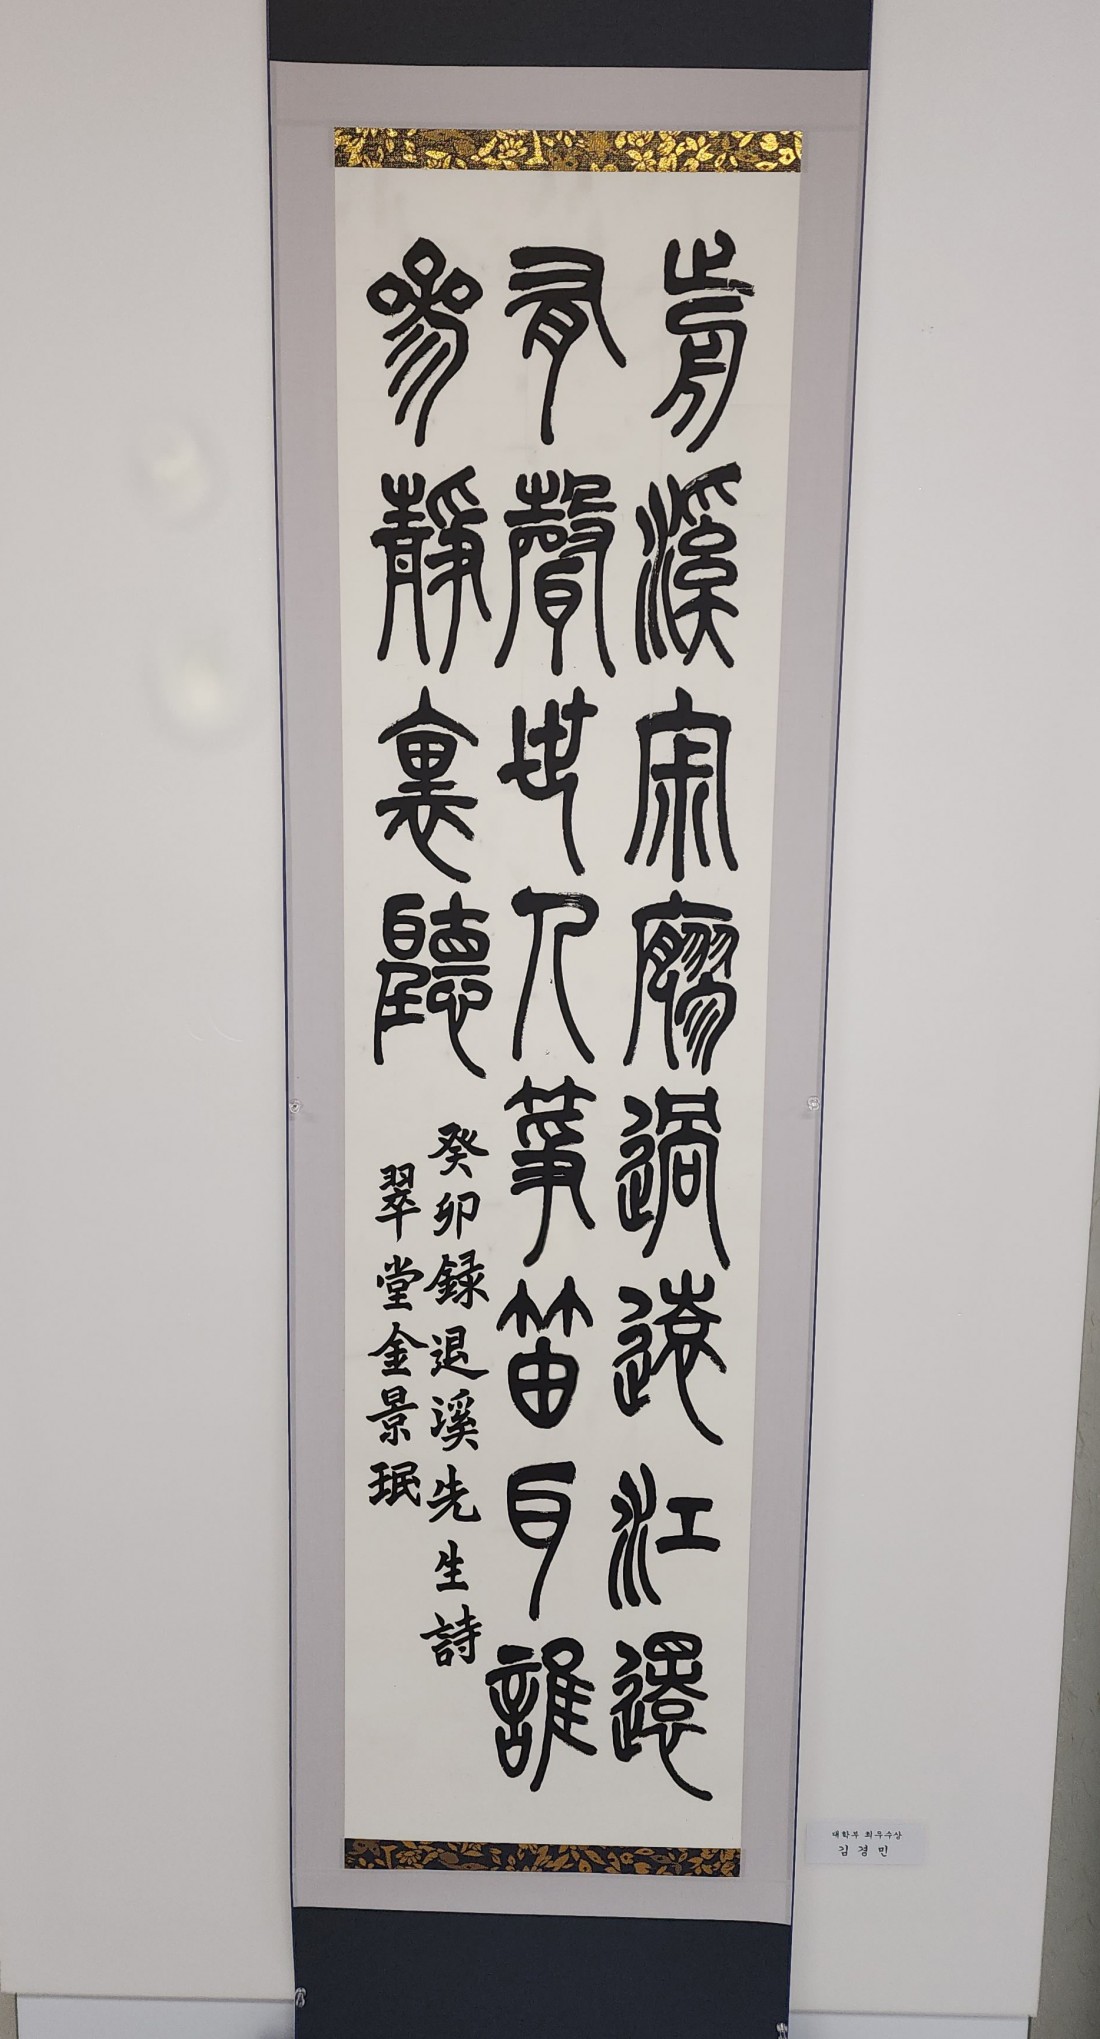 前溪寂寥過遠江還
有聲世人箏笛耳誰
參靜裏聽
癸卯錄退溪先生詩
翠堂金景珉
대학부 최우수상
김 경 민